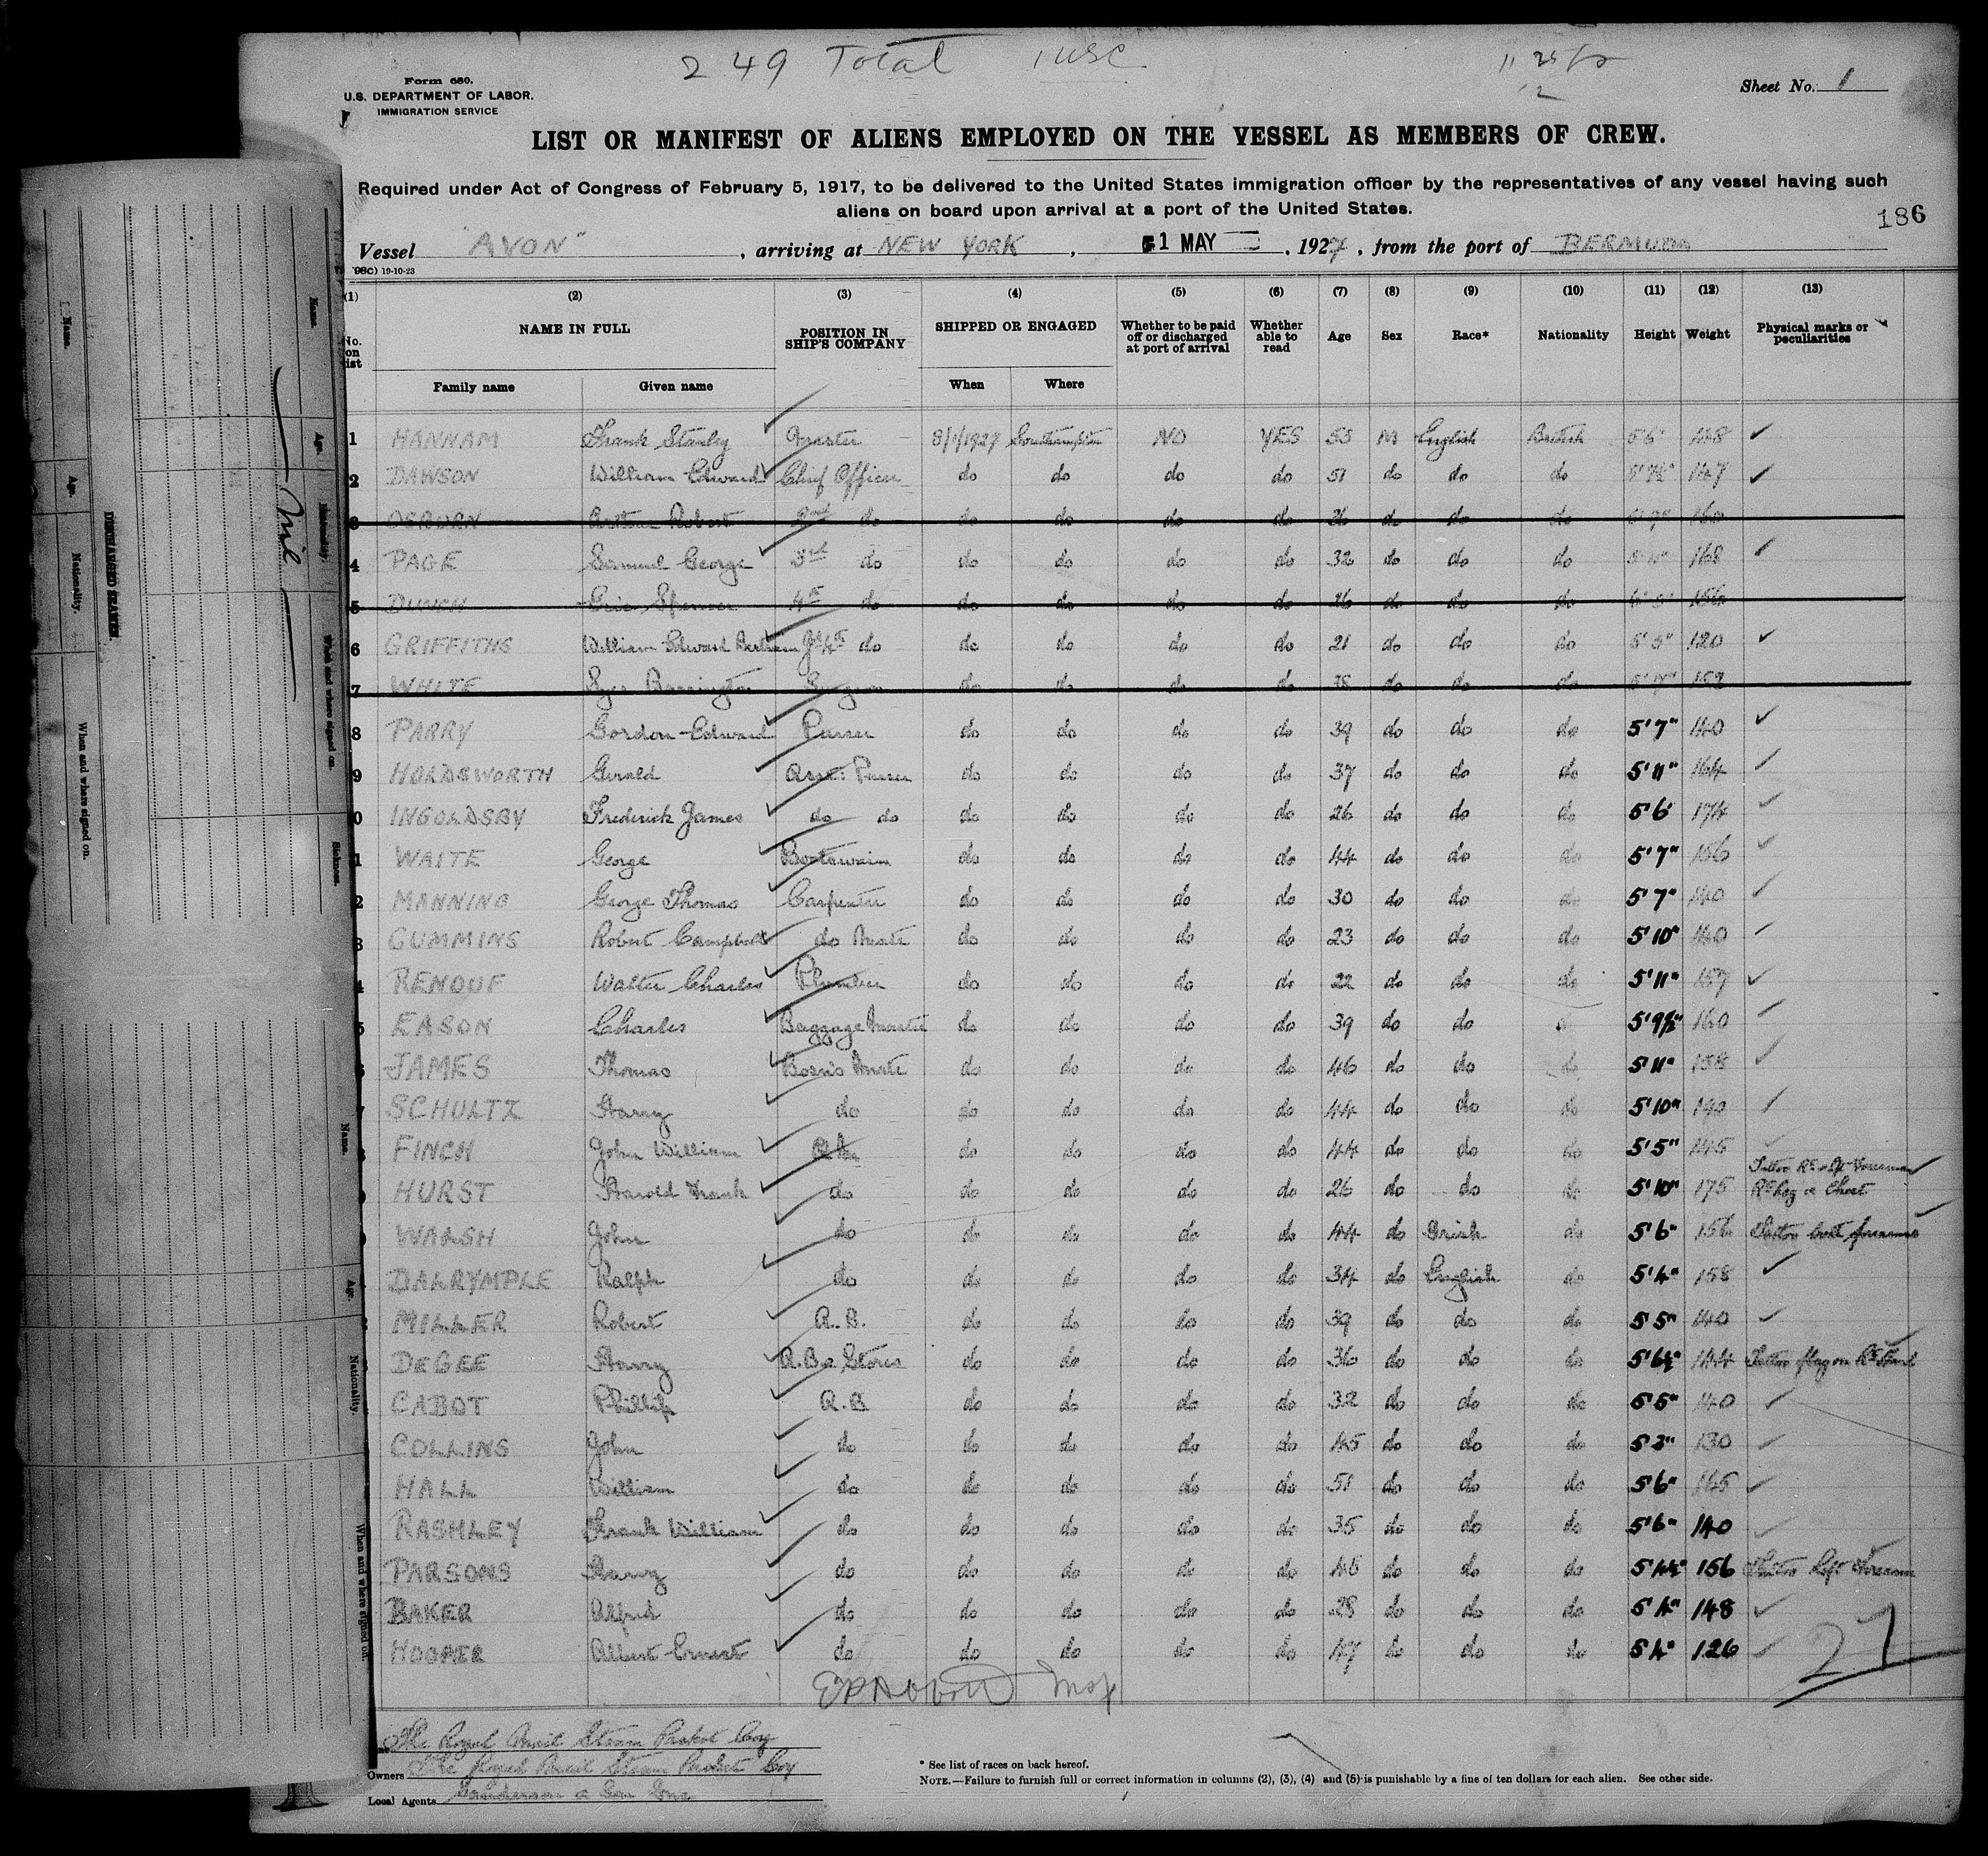 249 Total 1 USC
11 25/
12
Form 680.
U.S. DEPARTMENT OF LABOR.
IMMIGRATION SERVICE
Sheet No. 1
LIST OR MANIFEST OF ALIENS EMPLOYED ON THE VESSEL AS MEMBERS OF CREW.
Required under Act of Congress of February 5, 1917, to be delivered to the United States immigration officer by the representatives of any vessel having such
aliens on board upon arrival at a port of the United States.
186
Vessel "AVON", arriving at NEW YORK, 1 MAY, 1927, from the port of BERMUDA
98c) 19-10-23
(1) (2) (3) (4) (5) (6) (7) (8) (9) (10) (11) (12) (13)
No. on list NAME IN FULL POSITION IN SHIP'S COMPANY SHIPPED OR ENGAGED Whether to be paid off or discharged at port of arrival Whether able to read Age Sex Race* Nationality Height Weight Physical marks or peculiarities
Family name Given name When Where
1 HANNAM Frank Stanley Master 8/1/1927 Southampton NO YES 55 M English British 5'6" 168
2 DAWSON William Edward Chief Officer do do do do 51 do do do 5'7½" 147
3 OSBORN Arthur Robert 2nd do do do do do 36 do do do 5'9" 160
4 PAGE Samuel George 3rd do do do do do 32 do do do 168
5 DUNCH Eric Spencer 4th do do do do do 26 do do do 154
6 GRIFFITHS William Edward Bertram do do do do do 21 do do do 5'5" 120
7 WHITE Barrington Surgeon do do do do 38 do do do 152
8 PARRY Gordon Edward Purser do do do do 39 do do do 5'7" 140
9 HOLDSWORTH Gerald Asst: Purser do do do do 37 do do do 5'11" 164
0 INGOLDSBY Frederick James do do do do do do 26 do do do 5'6 174
1 WAITE George Boatswain do do do do 44 do do do 5'7" 156
2 MANNING George Thomas Carpenter do do do do 30 do do do 5'7" 140
3 CUMMINS Robert Campbell do Mate do do do do 23 do do do 5'10" 140
4 RENOUF Walter Charles Plumber do do do do 22 do do do 5'11" 157
5 EASON Charles Baggage Master do do do do 39 do do do 5'9½" 160
JAMES Thomas Bosn's Mate do do do do 46 do do do 5'11" 158
7 SCHULTZ Harry do do do do do 44 do do do 5'10" 190
FINCH John William Q.M. do do do do 44 do do do 5'5" 145
HURST Harold Frank do do do do do 26 do do do 5'10" 175 Tattoo Rt & Lft Forearm Rt Leg & Chest
WALSH John do do do do do 44 do Irish do 5'6" 156 Tattoo both forearms
DALRYMPLE Ralph do do do do do 34 do English do 5'4" 158
MILLER Robert A.B. do do do do 39 do do do 5'5" 140
DEGEE Harry A.B. & Stores do do do do 36 do do do 5'6½" 144 Tattoo flag on Rt Hand
CABOT Phillip A.B do do do do 32 do do do 5'5" 140
COLLINS John do do do do do 45 do do do 5'3" 130
HALL William do do do do do 51 do do do 5'6" 165
RASHLEY Frank William do do do do do 35 do do do 5'6" 140
PARSONS Harry do do do do do 48 do do do 5'4½" 156 Tattoo Left Forearm
BAKER Alfred do do do do do 28 do do do 5'4" 148
HOOPER Albert Ernest do do do do do 47 do do do 5'4" 126
27
Insp
The Royal Mail Steam Packet Coy
Owners The Royal Mail Steam Packet Coy
Local Agents Sanderson & Son Inc
* See list of races on back hereof.
NOTE.—Failure to furnish full or correct information in columns (2), (3), (4) and (5) is punishable by a fine of ten dollars for each alien. See other side.
DISCHARGED SEAMEN.
Name. Age. Nationality. When and where signed on.
Name. Age. Nationality. When and where signed on. Sickness.
Nil
Name. Age. Nationality. When and where signed on.